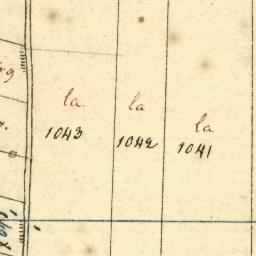 la
1043
la
1042
la
1041